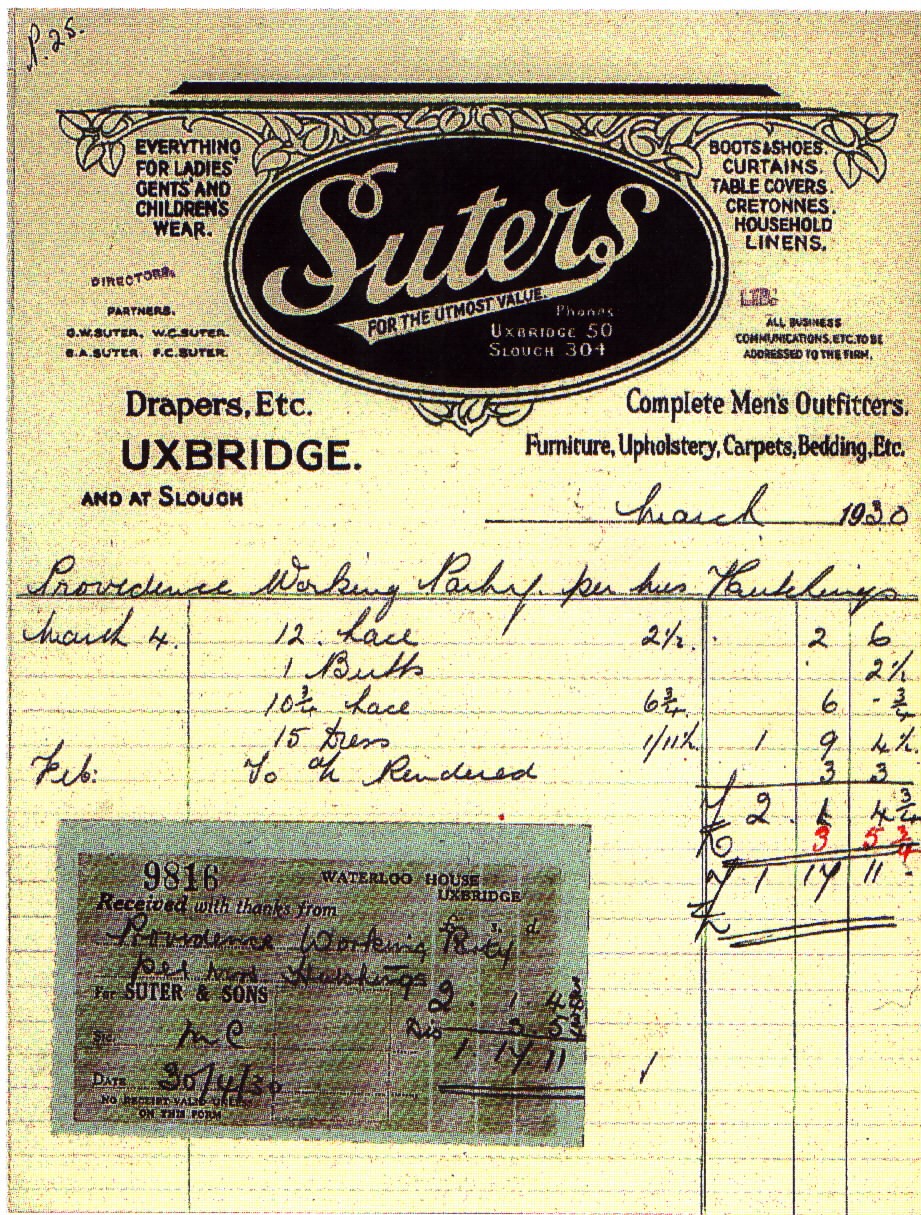 P. 25.
EVERYTHING
FOR LADIES'
GENTS' AND
CHILDREN'S
WEAR.
DIRECTORS.
PARTNERS.
G.W. SUTER, W.C. SUTER.
S.A. SUTER, F.C. SUTER.
Suters
FOR THE UTMOST VALUE.
Phones
UXBRIDGE 50
SLOUGH 304
BOOTS & SHOES.
CURTAINS.
TABLE COVERS.
CRETONNES.
HOUSEHOLD
LINENS.
LTD.
ALL BUSINESS
COMMUNICATIONS, ETC. TO BE
ADDRESSED TO THE FIRM.
Drapers, Etc.
UXBRIDGE.
AND AT SLOUGH
Complete Men's Outfitters.
Furniture, Upholstery, Carpets, Bedding, Etc.
March 1930
Providence Working Party. per Mrs Hutchings
March 4. 12 Lace 2½. 2 6
1 Butts 2½
10¾ Lace 6¾ 6 - ¾
15 Dress 1/11½ 1 9 4½
Feb: To a/c Rendered 3 3
2 . 1 4¾
3 5¾
1 17 11 -
9816 WATERLOO HOUSE
UXBRIDGE
Received with thanks from
£ s. d
Providence Working Party
per Mrs Hutchings
For SUTER & SONS
2 . 1 . 4
Dis 3 5
Sig. M C
1 . 17 . 11
DATE 30/4/30
NO RECEIPT VALID UNLESS
ON THIS FORM